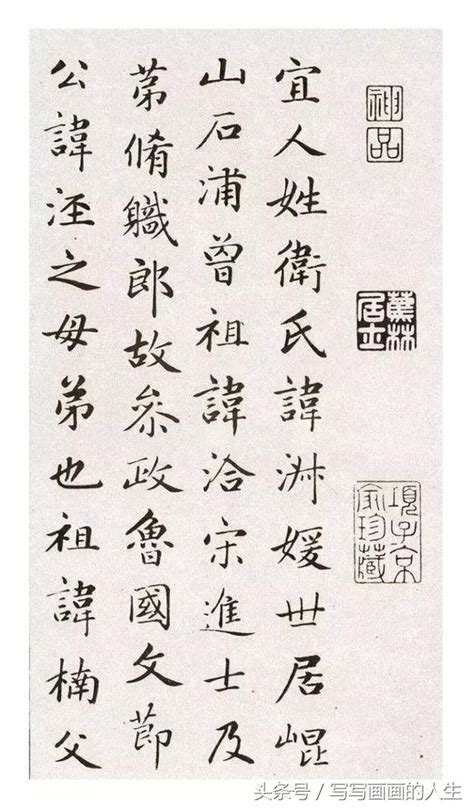 神品
蕉林居士
項子京家珍藏
宜人姓衛氏諱淑媛世居崐
山石浦曾祖諱洽宋進士及
苐脩軄郎故叅政魯國文節
公諱涇之母弟也祖諱楠父
头条号 / 写写画画的人生